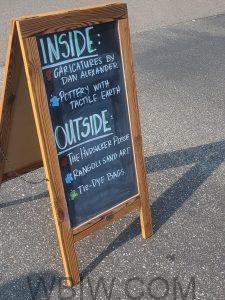 INSIDE:
CARICATURES BY
DAN ALEXANDER
POTTERY WITH
TACTILE EARTH
OUTSIDE:
THE HUDSUCKER POSSE
RANGOLI SAND ART
TIE-DYE BAGS
WBIW.COM